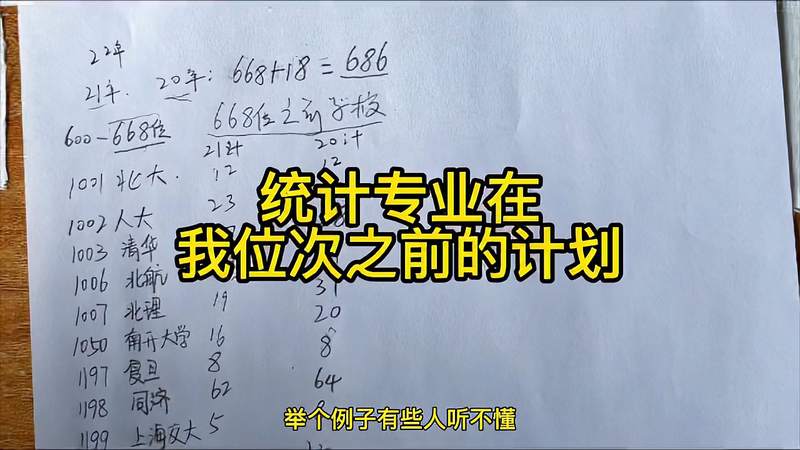 22年
21年. 20年: 668+18=686
600-668位 668位之前学校
21计 20计
1001 北大. 12 12
1002 人大 23 8
统计专业在
1003 清华
我位次之前的计划
1006 北航 31
1007 北理 19 20
1050 南开大学 16 8
1197 复旦 8 64
1198 同济 62
1199 上海交大 5
举个例子有些人听不懂